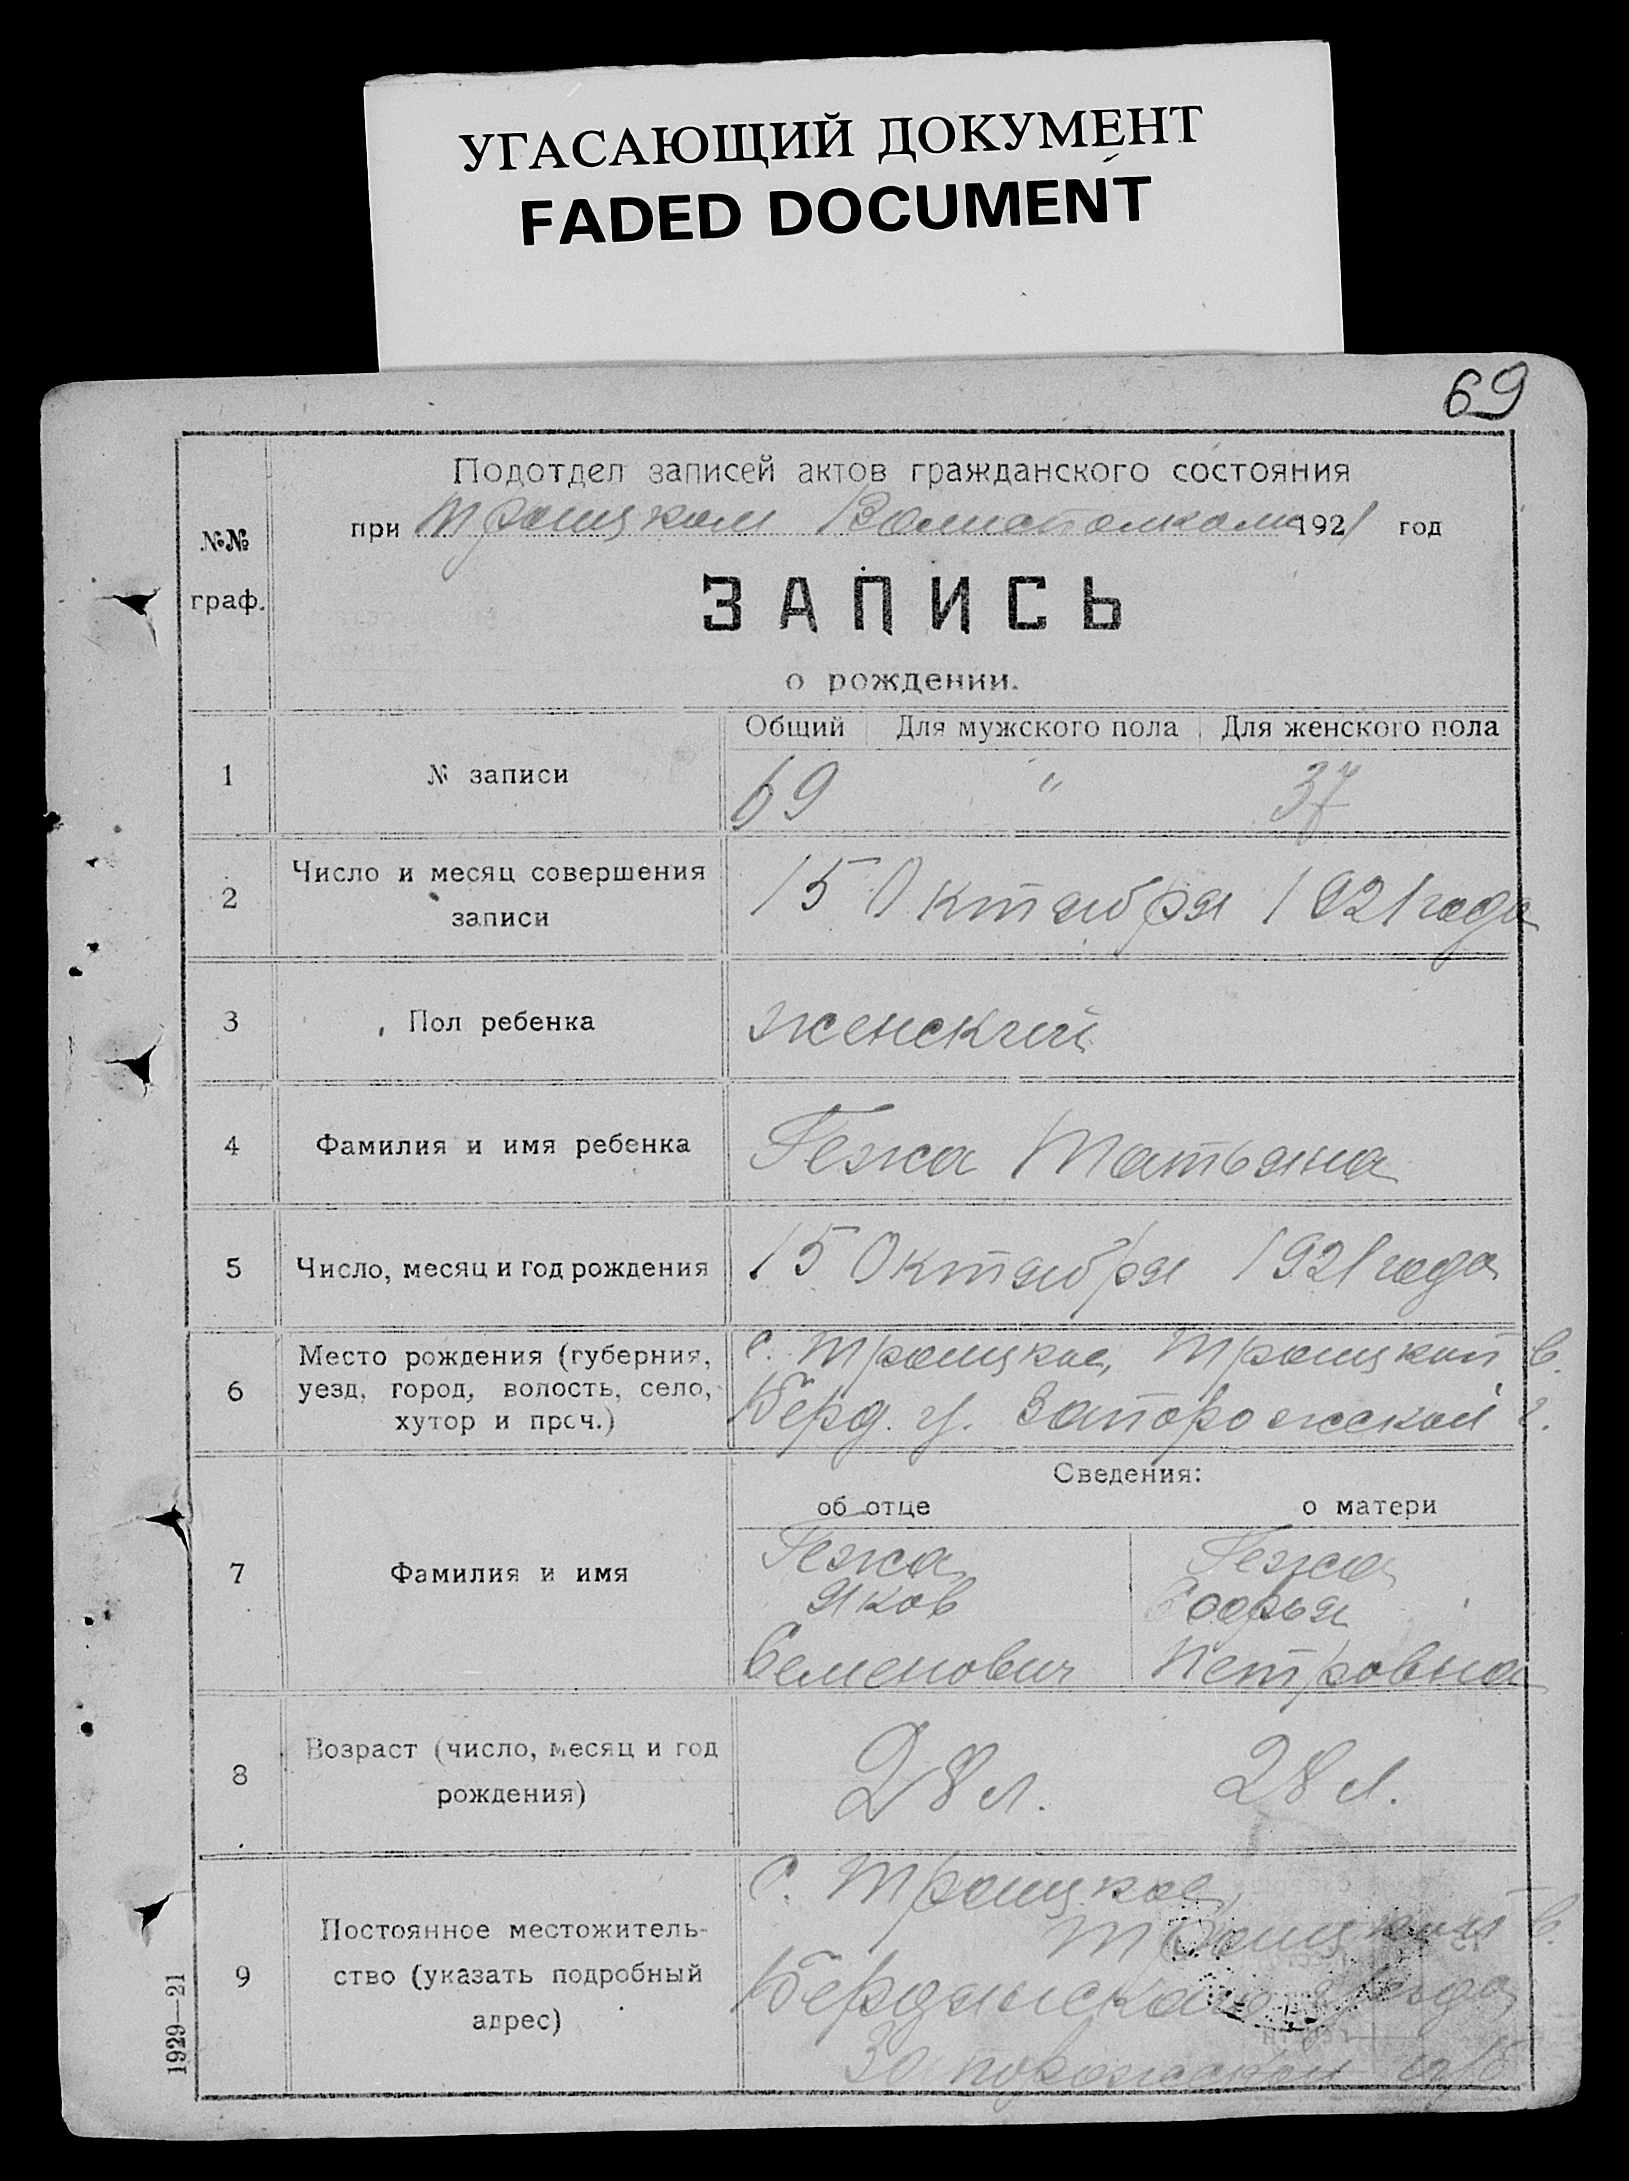 УГАСАЮЩИЙ ДОКУМЕНТ
FADED DOCUMENT
69
Подотдел записей актов гражданского состояния
при Троицком Волисполкоме 1921 год
№№
граф.
ЗАПИСЬ
о рождении.
Общий Для мужского пола Для женского пола
1 № записи 69 " 37
2 Число и месяц совершения
записи
15 Октября 1921 года
3 Пол ребенка женский
4 Фамилия и имя ребенка Гежа Татьяна
5 Число, месяц и год рождения 15 Октября 1921 года
6 Место рождения (губерния,
уезд, город, волость, село,
хутор и проч.)
с. Троицкое, Троицкой в.
Берд. у. Запорожской г.
Сведения:
об отце о матери
7 Фамилия и имя
Гежа Гежа
Яков Софья
Семенович Петровна
8 Возраст (число, месяц и год
рождения)
28 л. 28 л.
9 Постоянное местожитель-
ство (указать подробный
адрес)
с. Троицкое,
Троицкой в.
Бердянского уезда
Запорожской губ
1929—21